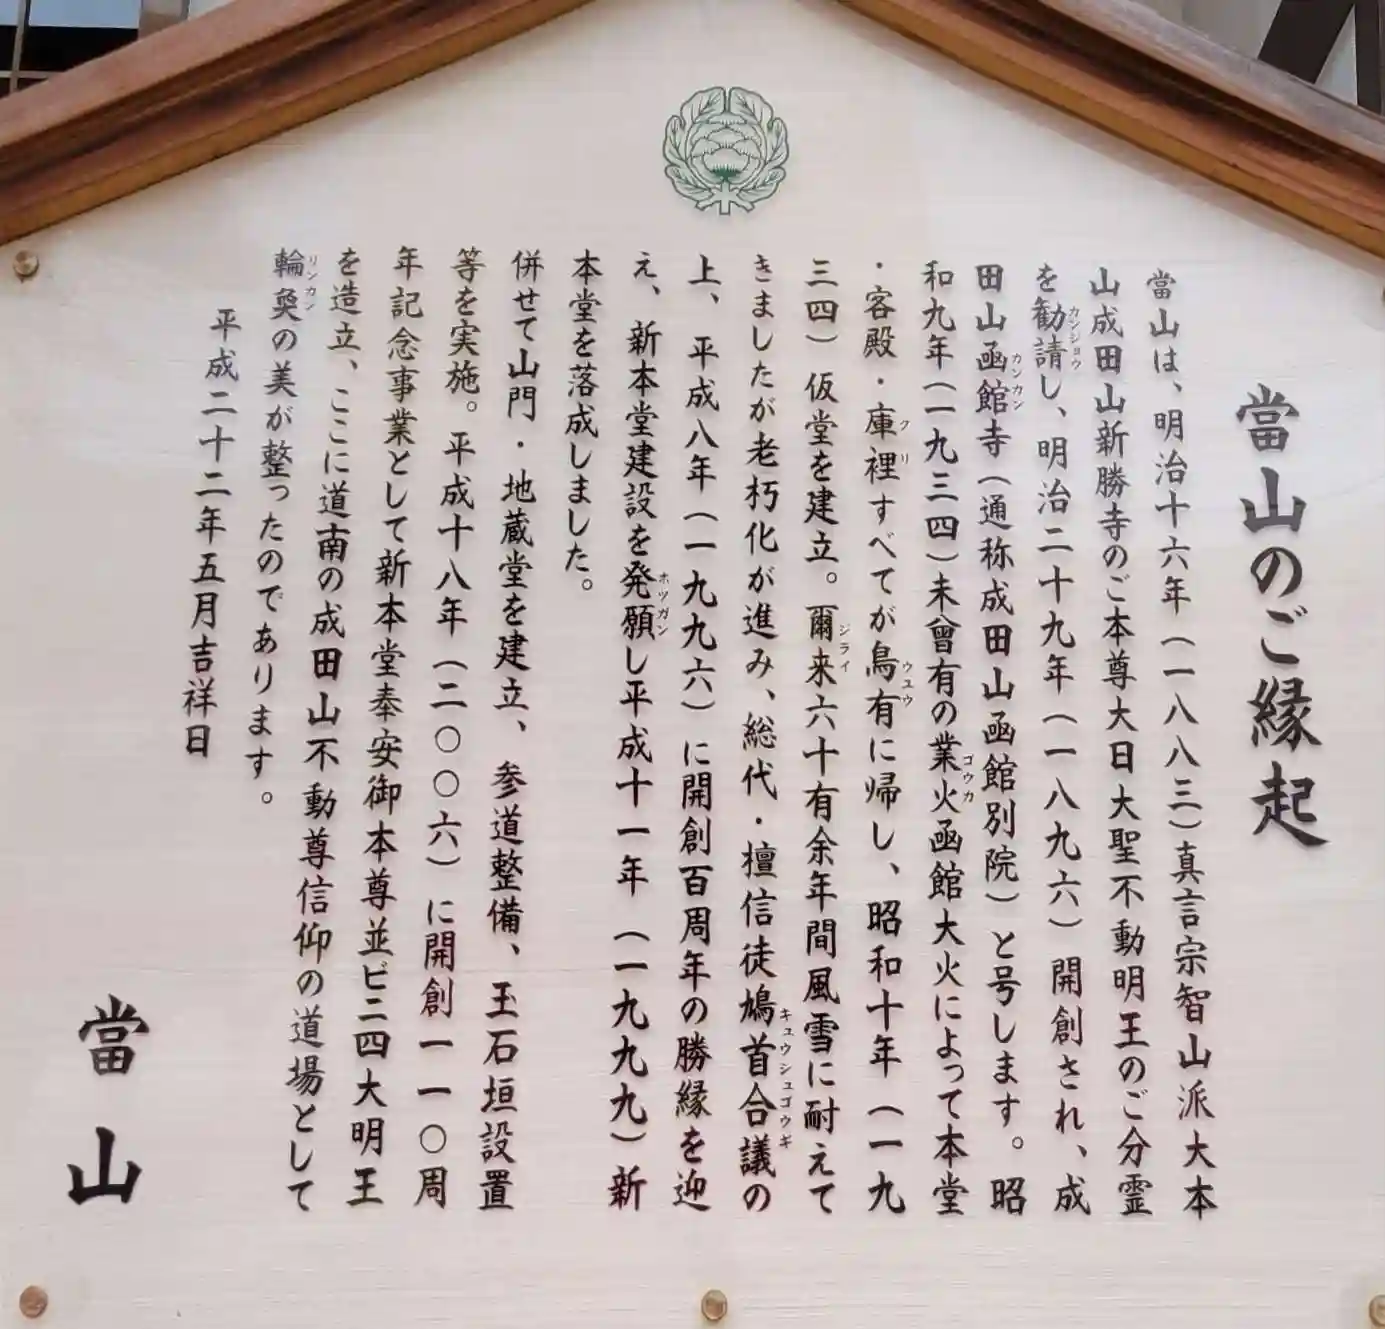 當山のご縁起
當山は、明治十六年(一八八三)真言宗智山派大本
山成田山新勝寺のご本尊大日大聖不動明王のご分霊
を勧請し、明治二十九年(一八九六)開創され、成
カンジョウ
田山函館寺(通称成田山函館別院)と号します。昭
カンカン
和九年(一九三四)未曾有の業火函館大火によって本堂
ゴウカ
・客殿・庫裡すべてが烏有に帰し、昭和十年(一九
クリ ウユウ
三四)仮堂を建立。爾来六十有余年間風雪に耐えて
ジライ
きましたが老朽化が進み、総代・檀信徒鳩首合議の
キュウシュゴウギ
上、平成八年(一九九六)に開創百周年の勝縁を迎
え、新本堂建設を発願し平成十一年(一九九九)新
ホツガン
本堂を落成しました。
併せて山門・地蔵堂を建立、参道整備、玉石垣設置
等を実施。平成十八年(二〇〇六)に開創一一〇周
年記念事業として新本堂奉安御本尊並ビニ四大明王
を造立、ここに道南の成田山不動尊信仰の道場として
輪奐の美が整ったのであります。
リンカン
平成二十二年五月吉祥日
當山